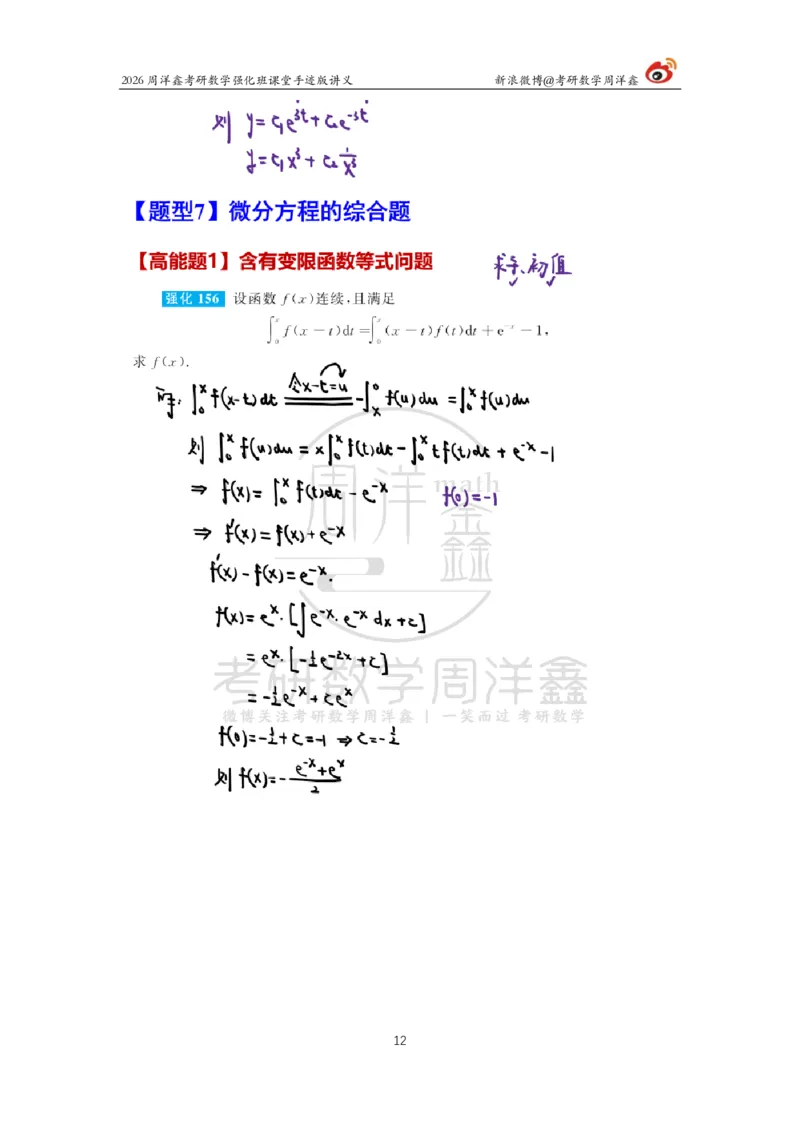 2026 周洋鑫考研数学强化班课堂手迹版讲义 新浪微博@考研数学周洋鑫
则 y=c₁e^{3t}+c₂e^{-3t}
y=c₁x³+c₂\frac{1}{x³}
【题型7】微分方程的综合题
【高能题1】含有变限函数等式问题 求导、初值
强化 156 设函数 f(x)连续,且满足
∫_0^x f(x-t)dt=∫_0^x (x-t)f(t)dt+e^{-x}-1,
求 f(x).
解: ∫_0^x f(x-t)dt \xlongequal{令x-t=u} -∫_x^0 f(u)du=∫_0^x f(u)du
则 ∫_0^x f(u)du=x∫_0^x f(t)dt-∫_0^x tf(t)dt+e^{-x}-1
⇒ f(x)=∫_0^x f(t)dt-e^{-x} f(0)=-1
⇒ f'(x)=f(x)+e^{-x}
f'(x)-f(x)=e^{-x}.
f(x)=e^x·[∫e^{-x}·e^{-x}dx+c]
=e^x·[-\frac{1}{2}e^{-2x}+c]
=-\frac{1}{2}e^{-x}+ce^x
f(0)=-\frac{1}{2}+c=-1 ⇒ c=-\frac{1}{2}
则 f(x)=-\frac{e^{-x}+e^x}{2}
周洋鑫 math
考研数学周洋鑫
微博关注考研数学周洋鑫 | 一笑而过 考研数学
12